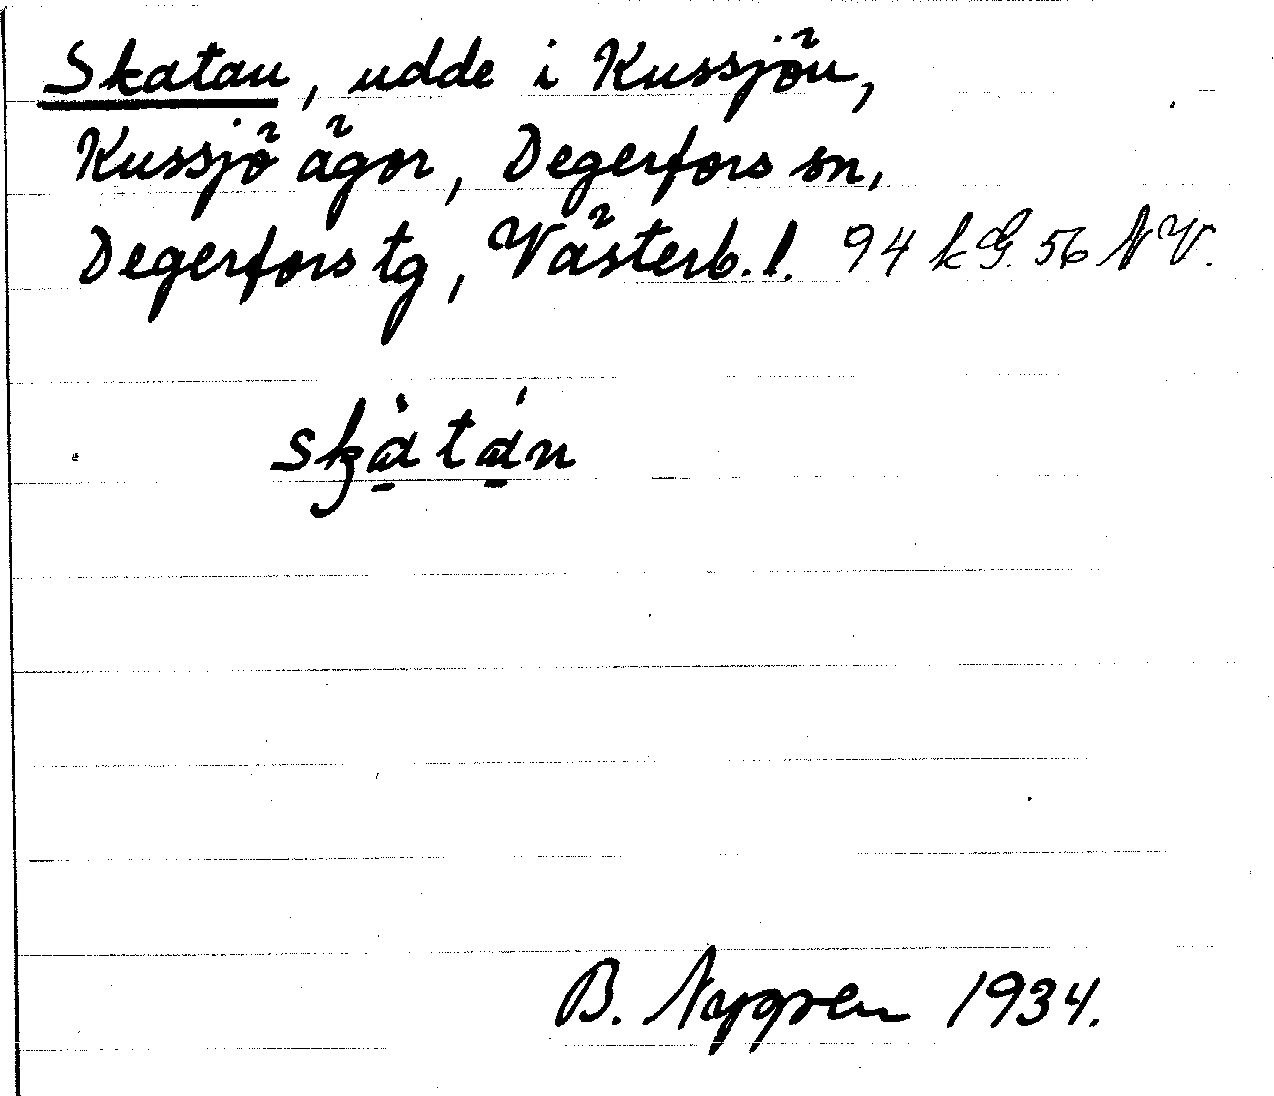 Skatan, udde i Kussjön,
Kussjö ägor, Degerfors sn,
Degerfors tg, Västerb. l. 94 k G. 56 NV.
skà̱tá̱n
B. Nygren 1934.